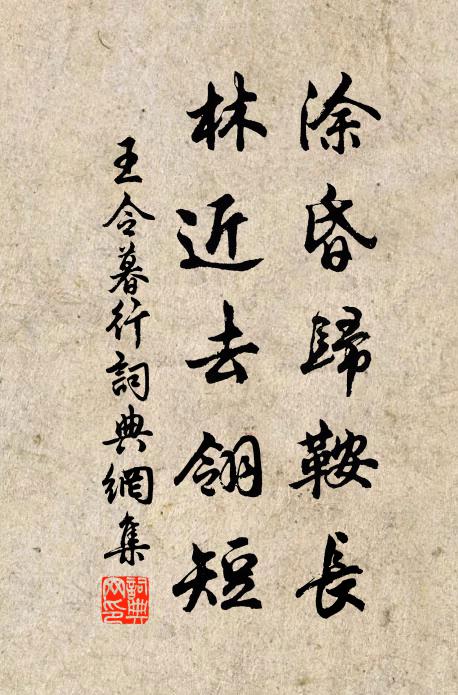 涂昏歸鞍長
林近去翎短
王令暮行詞典網集
詞典
网印